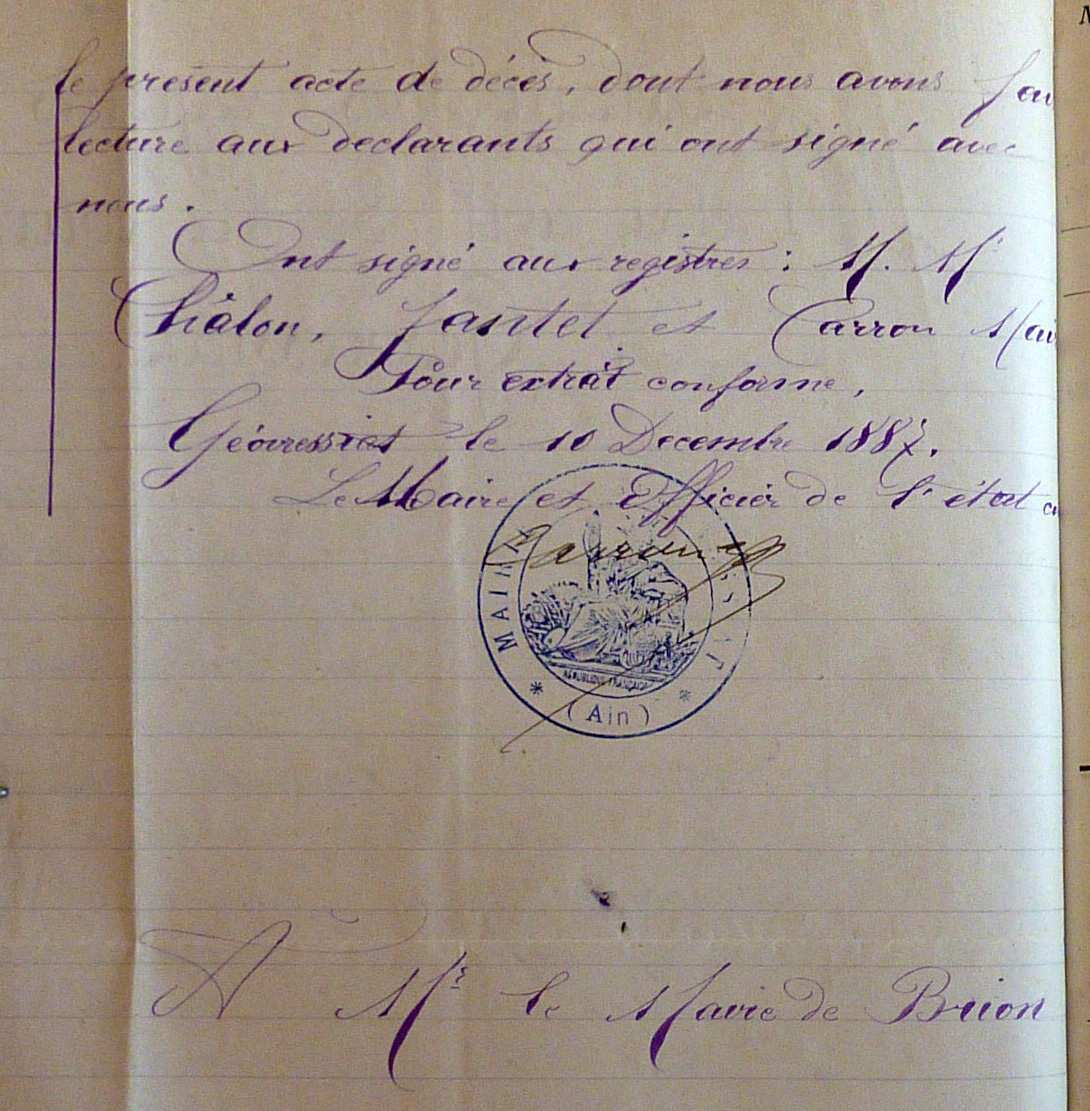 le présent acte de décès, dont nous avons fai
lecture aux declarants qui ont signé avec
nous.
Ont signé aux registres : M. M
Châlon, Jantet et Carron Mai
Pour extrait conforme,
Géovressiat le 10 Decembre 1887.
Le Maire et Officier de l'état c
MAIRI
RÉPUBLIQUE FRANÇAISE
* (Ain) *
A Mr le Maire de Brion